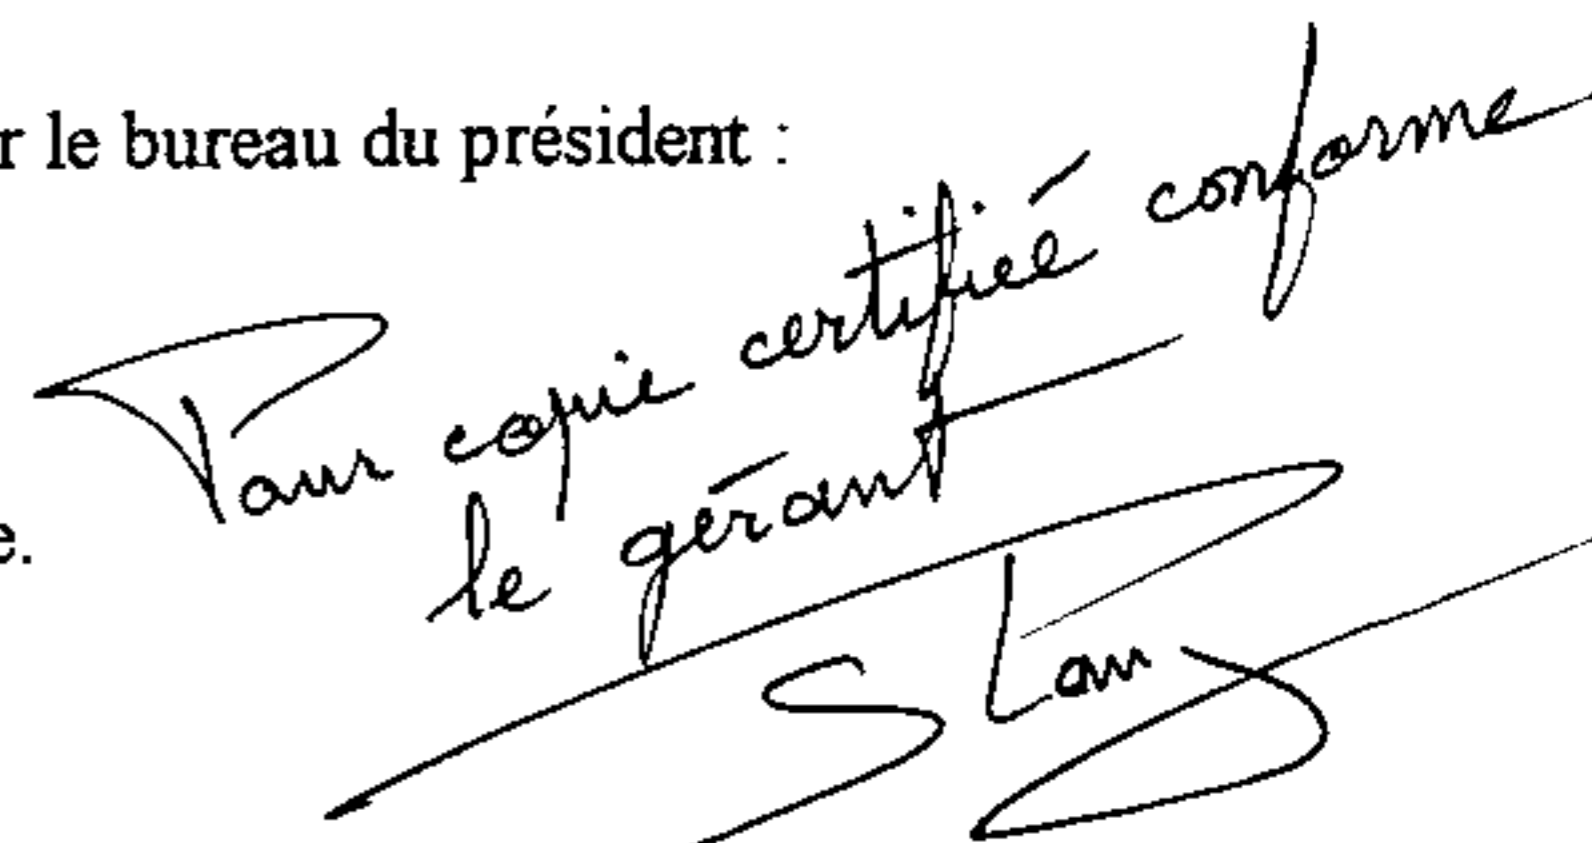 r le bureau du président :
Pour copie certifiée conforme
le gérant
e.